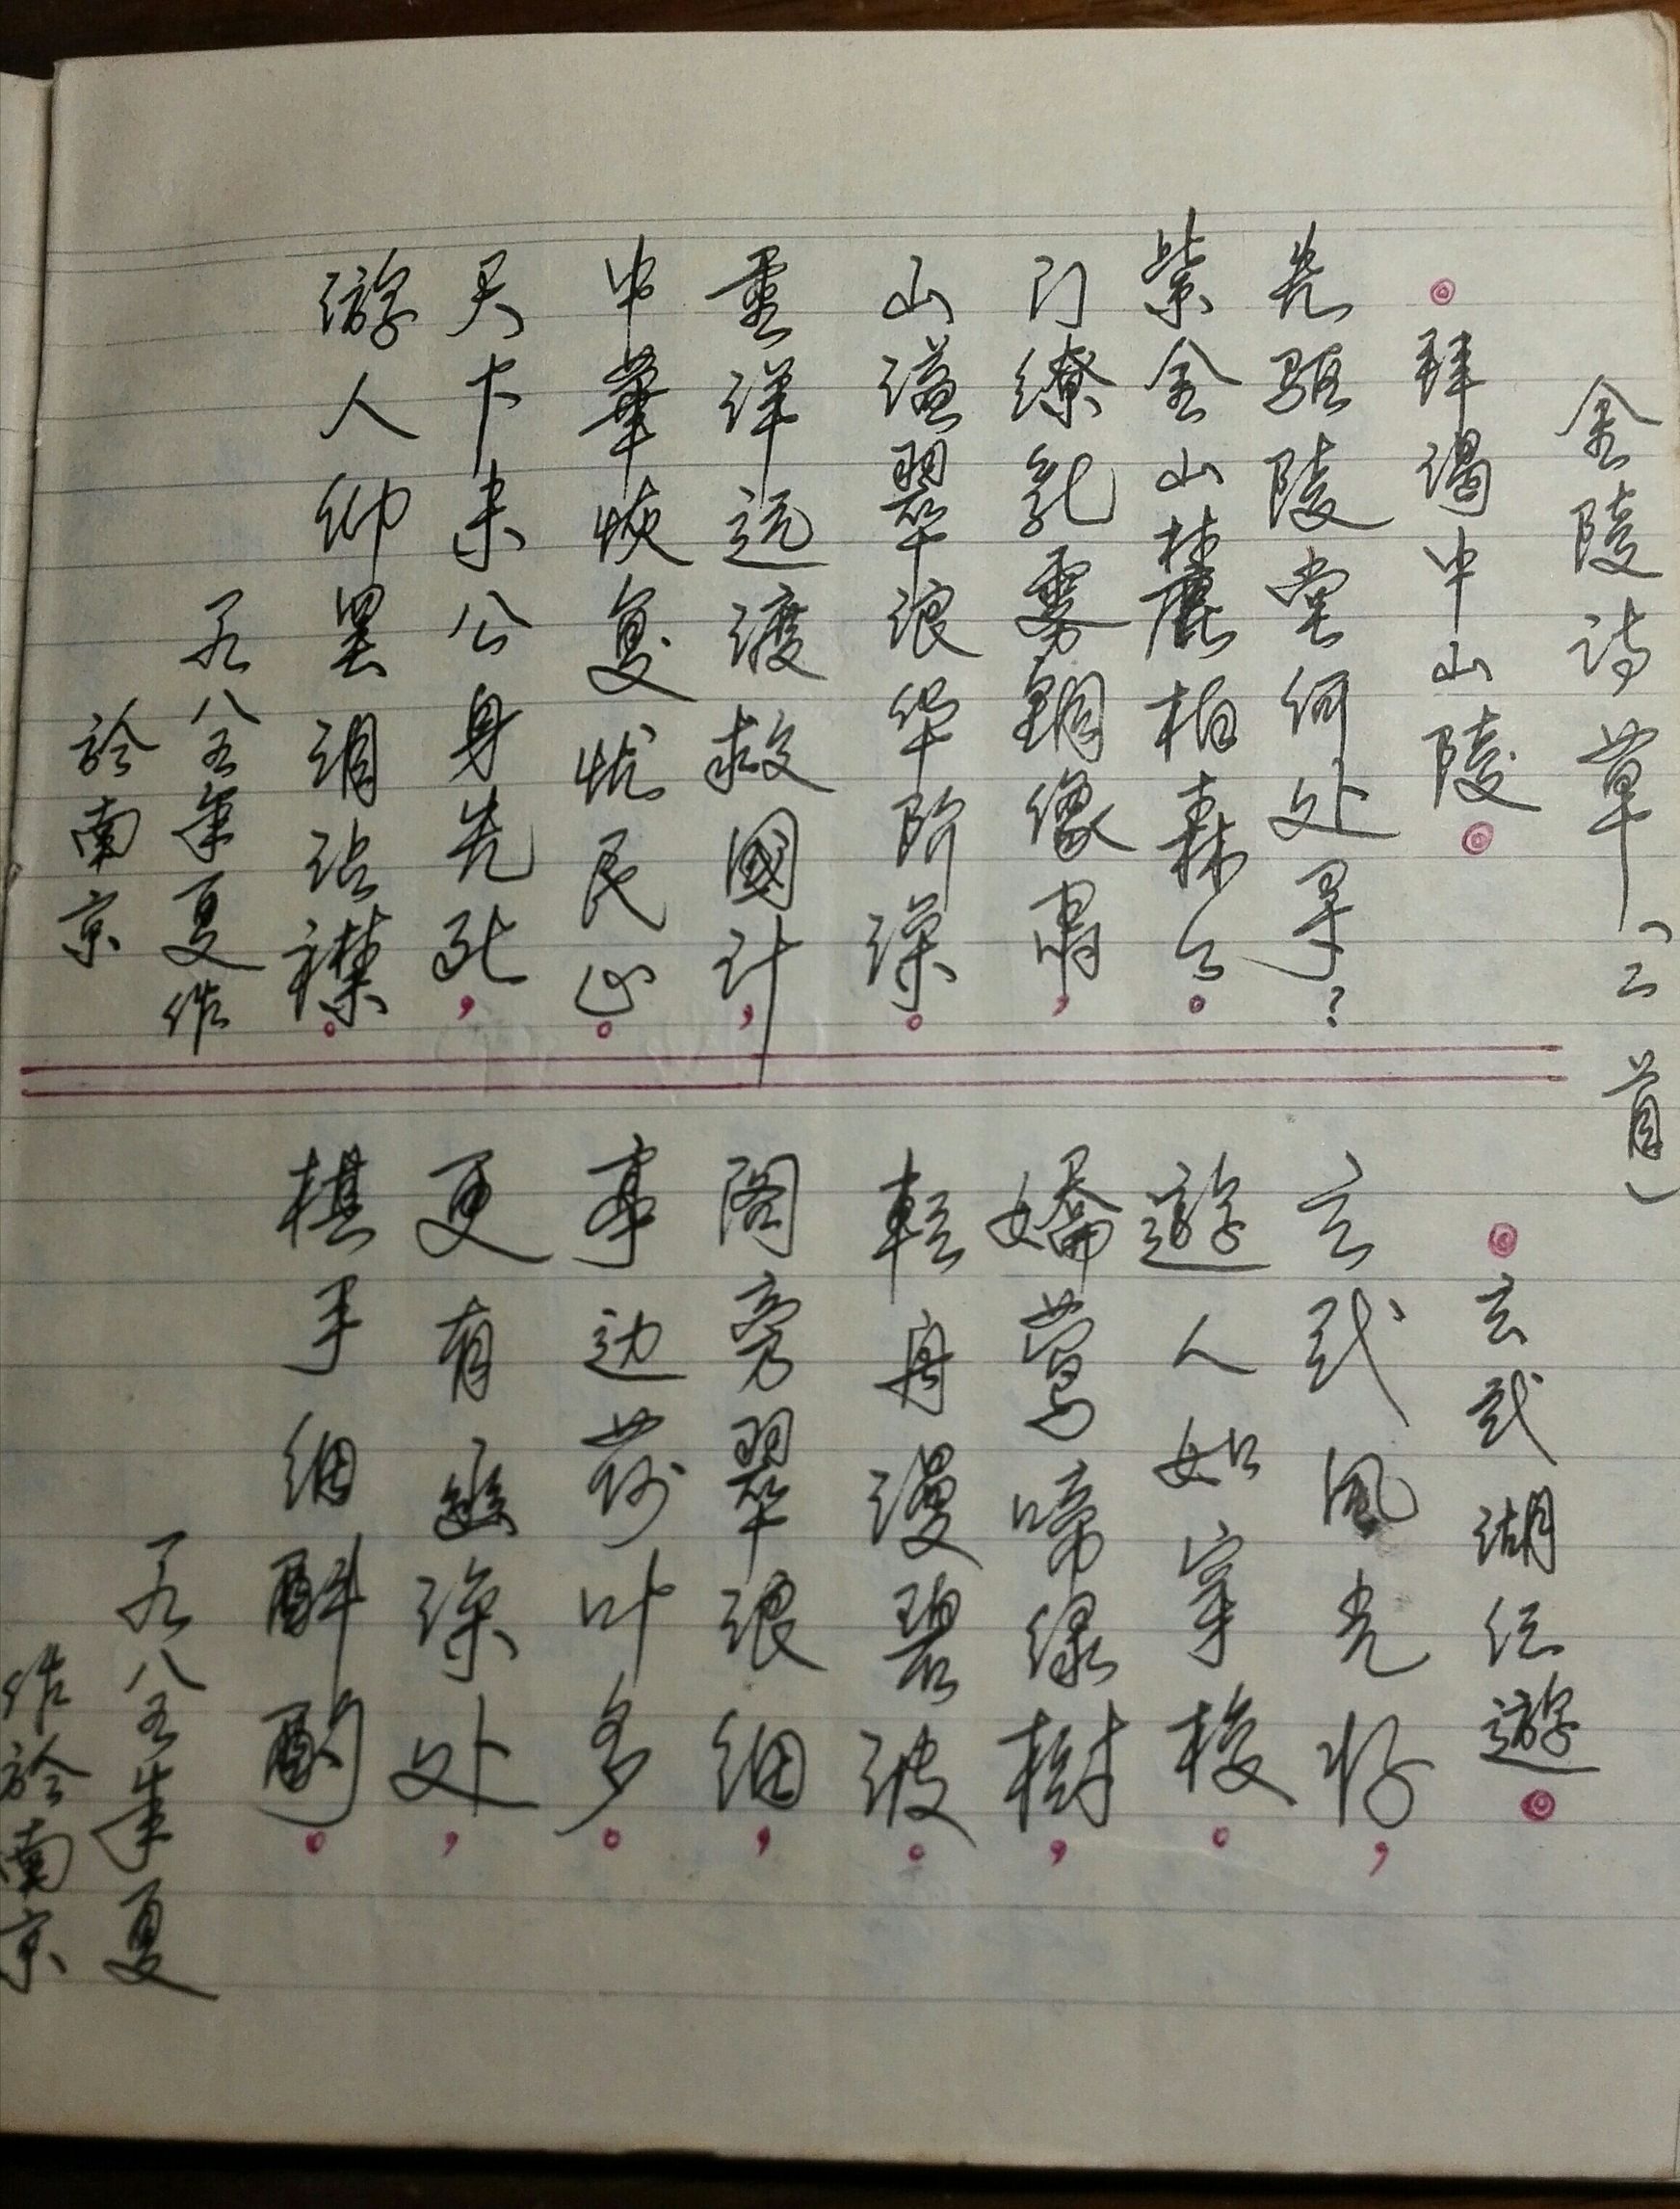 金陵诗草（二首）
拜谒中山陵
先驱陵堂何处寻？
紫金山麓柏森々。
门缭乳雾铜像肃，
山溢翠浪华阶深。
重洋远渡救國计，
中華恢复忧民心。
天下未公身先死，
游人仰罢泪沾襟。
一九八五年夏作
於南京
玄武湖纪遊
玄武风光好，
遊人如穿梭。
娇莺啼绿樹，
轻舟漫碧波。
阁旁翠浪细，
亭边荷叶多。
更有幽深处，
棋手细斟酌。
一九八五年夏
作於南京